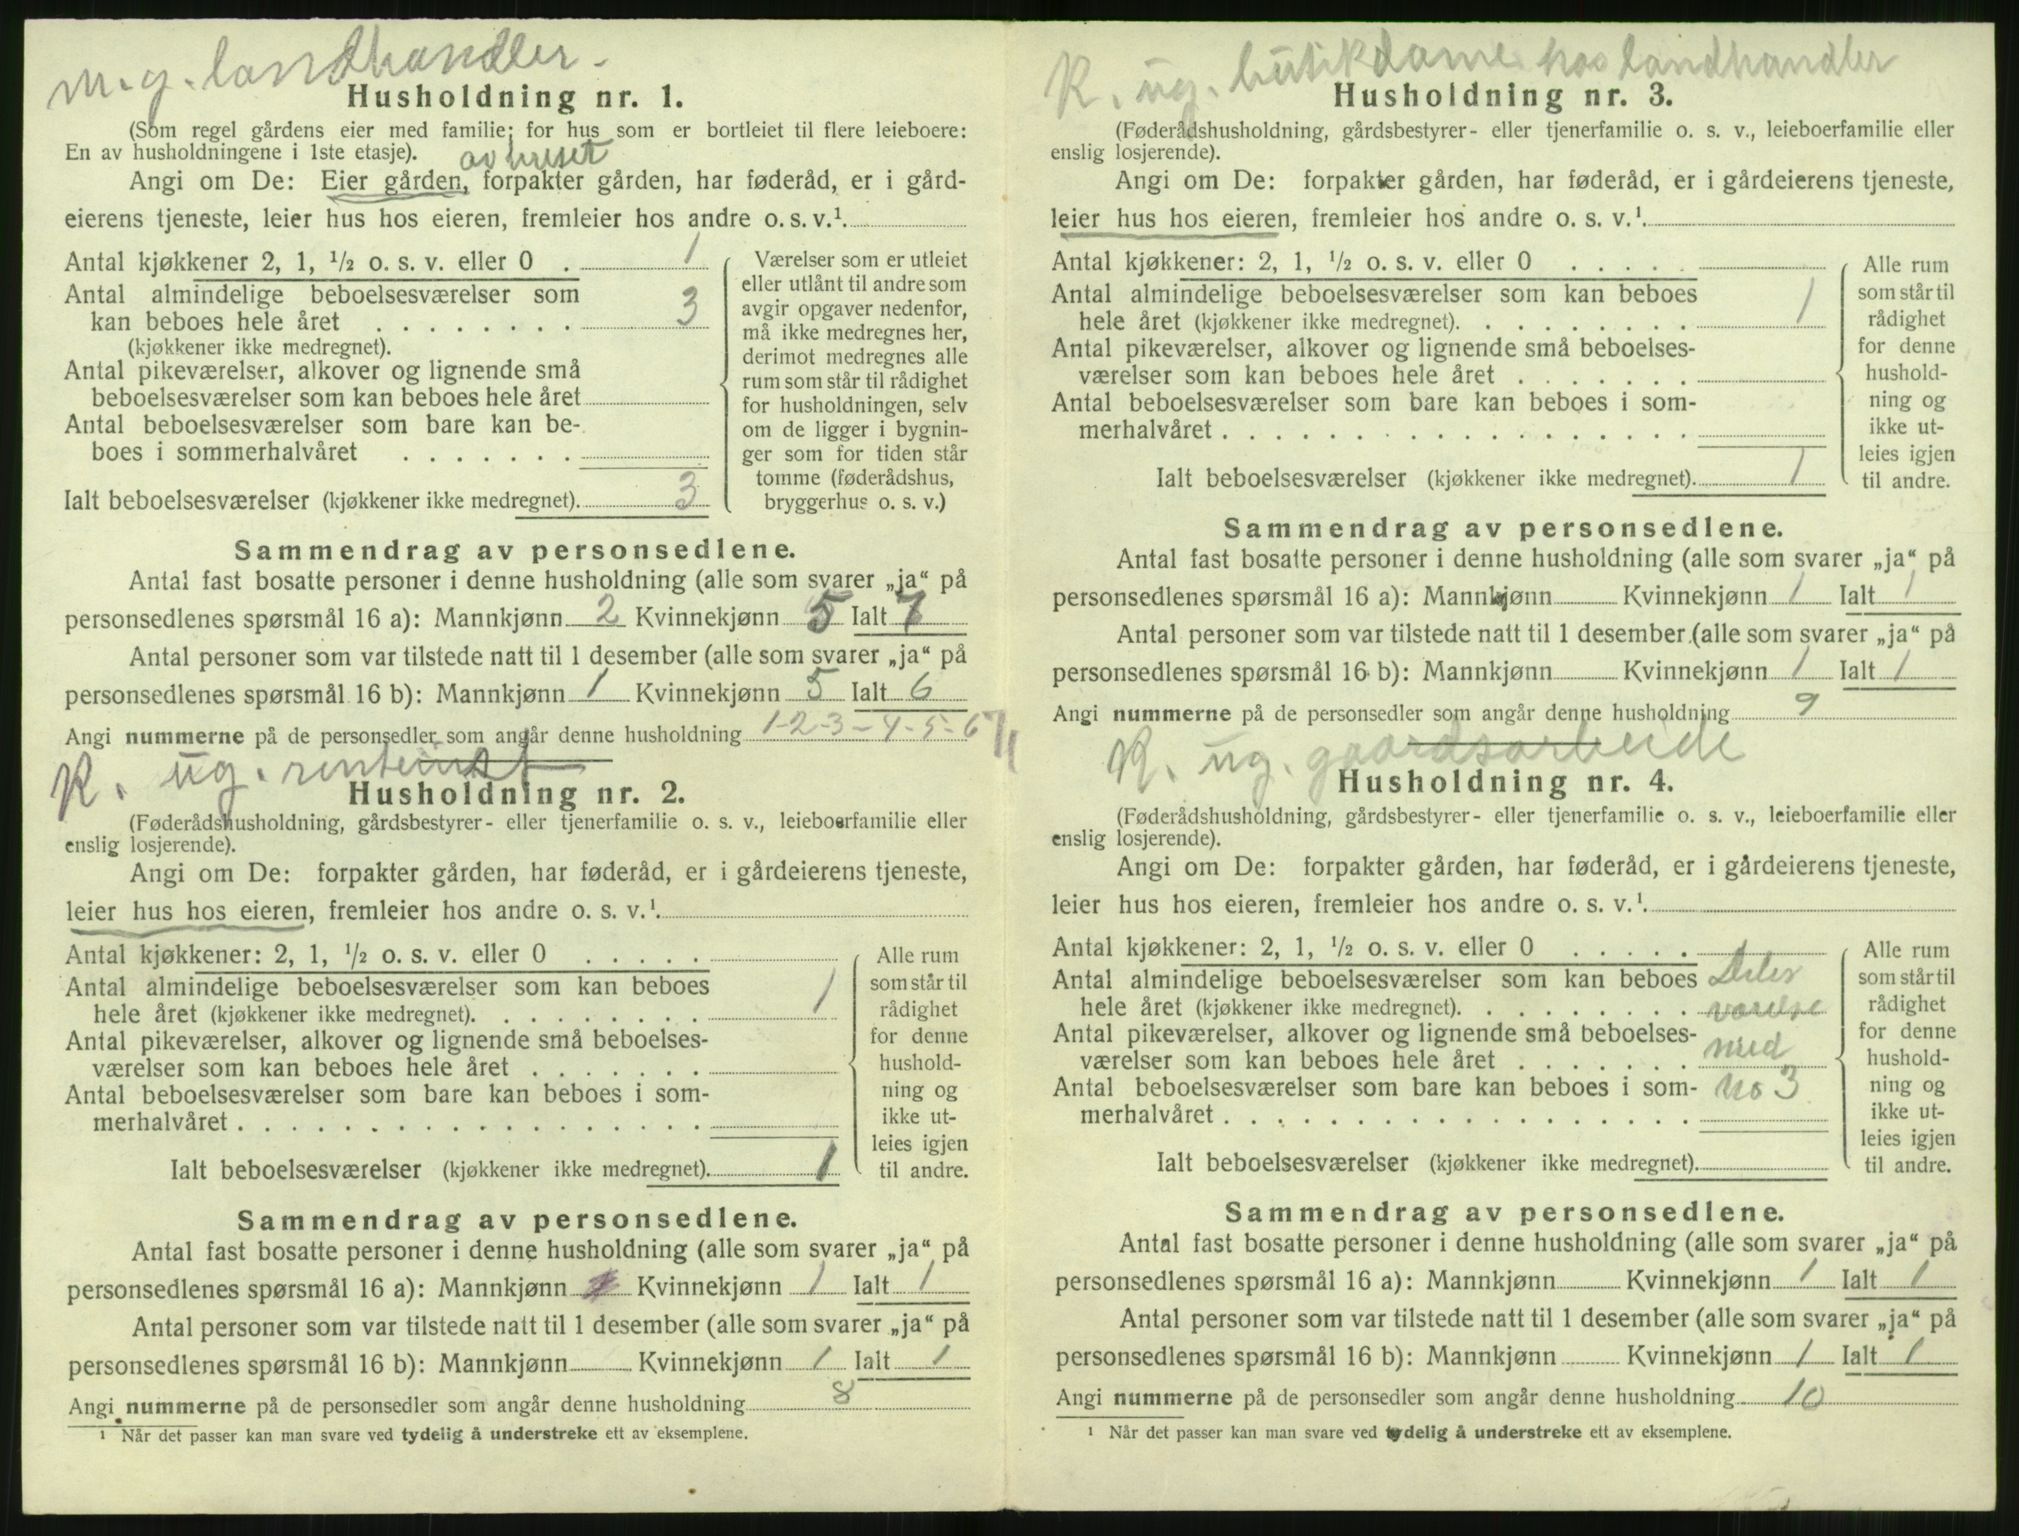 m. g. landhandler.
Husholdning nr. 1.
(Som regel gårdens eier med familie; for hus som er bortleiet til flere leieboere:
En av husholdningene i 1ste etasje).
av huset
Angi om De: Eier gården, forpakter gården, har føderåd, er i gård-
eierens tjeneste, leier hus hos eieren, fremleier hos andre o. s. v.¹.
Antal kjøkkener 2, 1, ½ o. s. v. eller 0 . 1
Antal almindelige beboelsesværelser som
kan beboes hele året . . . . . . . . 3
(kjøkkener ikke medregnet).
Antal pikeværelser, alkover og lignende små
beboelsesværelser som kan beboes hele året
Antal beboelsesværelser som bare kan be-
boes i sommerhalvåret . . . . . . .
Ialt beboelsesværelser (kjøkkener ikke medregnet). 3
Værelser som er utleiet
eller utlånt til andre som
avgir opgaver nedenfor,
må ikke medregnes her,
derimot medregnes alle
rum som står til rådighet
for husholdningen, selv
om de ligger i bygnin-
ger som for tiden står
tomme (føderådshus,
bryggerhus o. s. v.)
Sammendrag av personsedlene.
Antal fast bosatte personer i denne husholdning (alle som svarer „ja“ på
personsedlenes spørsmål 16 a): Mannkjønn 2 Kvinnekjønn 5 Ialt 7
Antal personer som var tilstede natt til 1 desember (alle som svarer „ja“ på
personsedlenes spørsmål 16 b): Mannkjønn 1 Kvinnekjønn 5 Ialt 6
Angi nummerne på de personsedler som angår denne husholdning 1-2-3-4-5-6-7
K. ug. renteinst
Husholdning nr. 2.
(Føderådshusholdning, gårdsbestyrer- eller tjenerfamilie o. s. v., leieboerfamilie eller
enslig losjerende).
Angi om De: forpakter gården, har føderåd, er i gårdeierens tjeneste,
leier hus hos eieren, fremleier hos andre o. s. v.¹.
Antal kjøkkener: 2, 1, ½ o. s. v. eller 0 . . . . .
Antal almindelige beboelsesværelser som kan beboes
hele året (kjøkkener ikke medregnet). . . . . . . . . 1
Antal pikeværelser, alkover og lignende små beboelses-
værelser som kan beboes hele året . . . . . . .
Antal beboelsesværelser som bare kan beboes i som-
merhalvåret . . . . . . . . . . . . . . . . . .
Ialt beboelsesværelser (kjøkkener ikke medregnet). 1
Alle rum
som står til
rådighet
for denne
hushold-
ning og
ikke ut-
leies igjen
til andre.
Sammendrag av personsedlene.
Antal fast bosatte personer i denne husholdning (alle som svarer „ja“ på
personsedlenes spørsmål 16 a): Mannkjønn Kvinnekjønn 1 Ialt 1
Antal personer som var tilstede natt til 1 desember (alle som svarer „ja“ på
personsedlenes spørsmål 16 b): Mannkjønn Kvinnekjønn 1 Ialt 1
Angi nummerne på de personsedler som angår denne husholdning 8
¹ Når det passer kan man svare ved tydelig å understreke ett av eksemplene.
K. ug. butikdame hos landhandler
Husholdning nr. 3.
(Føderådshusholdning, gårdsbestyrer- eller tjenerfamilie o. s. v., leieboerfamilie eller
enslig losjerende).
Angi om De: forpakter gården, har føderåd, er i gårdeierens tjeneste,
leier hus hos eieren, fremleier hos andre o. s. v.¹.
Antal kjøkkener: 2, 1, ½ o. s. v. eller 0 . . . . .
Antal almindelige beboelsesværelser som kan beboes
hele året (kjøkkener ikke medregnet). . . . . . . . . 1
Antal pikeværelser, alkover og lignende små beboelses-
værelser som kan beboes hele året . . . . . . .
Antal beboelsesværelser som bare kan beboes i som-
merhalvåret . . . . . . . . . . . . . . . . . .
Ialt beboelsesværelser (kjøkkener ikke medregnet). 1
Alle rum
som står til
rådighet
for denne
hushold-
ning og
ikke ut-
leies igjen
til andre.
Sammendrag av personsedlene.
Antal fast bosatte personer i denne husholdning (alle som svarer „ja“ på
personsedlenes spørsmål 16 a): Mannkjønn Kvinnekjønn 1 Ialt 1
Antal personer som var tilstede natt til 1 desember (alle som svarer „ja“ på
personsedlenes spørsmål 16 b): Mannkjønn Kvinnekjønn 1 Ialt 1
Angi nummerne på de personsedler som angår denne husholdning 9
K. ug. gaardsarbeide
Husholdning nr. 4.
(Føderådshusholdning, gårdsbestyrer- eller tjenerfamilie o. s. v., leieboerfamilie eller
enslig losjerende).
Angi om De: forpakter gården, har føderåd, er i gårdeierens tjeneste,
leier hus hos eieren, fremleier hos andre o. s. v.¹.
Antal kjøkkener: 2, 1, ½ o. s. v. eller 0 . . . . .
Antal almindelige beboelsesværelser som kan beboes Deler
hele året (kjøkkener ikke medregnet). . . . . . . . . værelse
Antal pikeværelser, alkover og lignende små beboelses-
værelser som kan beboes hele året . . . . . . . med
Antal beboelsesværelser som bare kan beboes i som- No 3
merhalvåret . . . . . . . . . . . . . . . . . .
Ialt beboelsesværelser (kjøkkener ikke medregnet).
Alle rum
som står til
rådighet
for denne
hushold-
ning og
ikke ut-
leies igjen
til andre.
Sammendrag av personsedlene.
Antal fast bosatte personer i denne husholdning (alle som svarer „ja“ på
personsedlenes spørsmål 16 a): Mannkjønn Kvinnekjønn 1 Ialt 1
Antal personer som var tilstede natt til 1 desember (alle som svarer „ja“ på
personsedlenes spørsmål 16 b): Mannkjønn Kvinnekjønn 1 Ialt 1
Angi nummerne på de personsedler som angår denne husholdning 10
¹ Når det passer kan man svare ved tydelig å understreke ett av eksemplene.